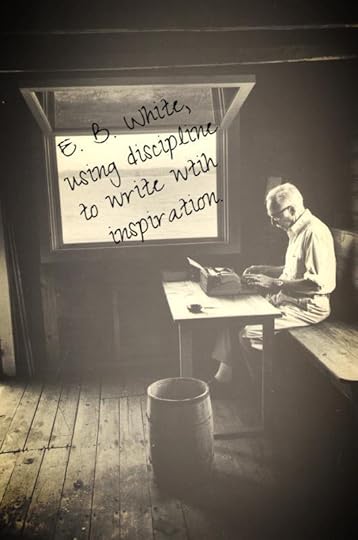 E. B. White,
using discipline
to write wtih
inspiration.